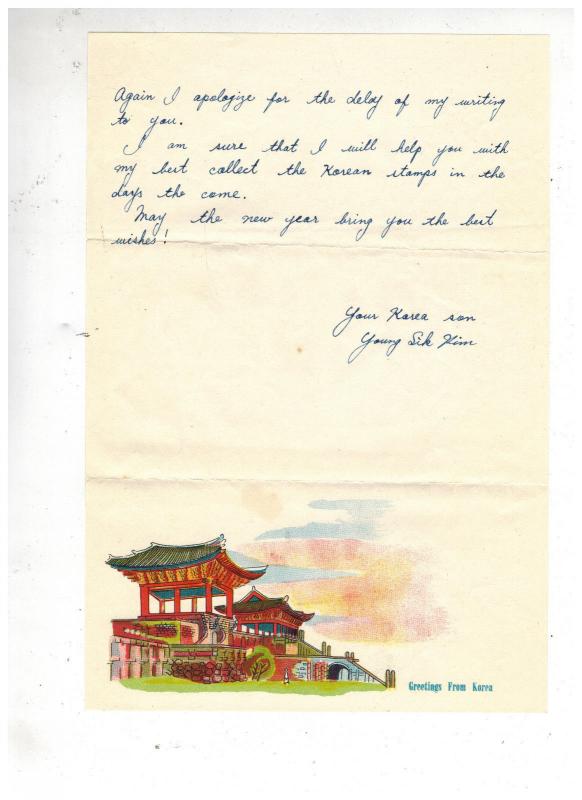 Again I apologize for the delay of my writing
to you.
I am sure that I will help you with
my best collect the Korean stamps in the
days the come.
May the new year bring you the best
wishes!
Your Korea son
Young Sik Kim
Greetings From Korea